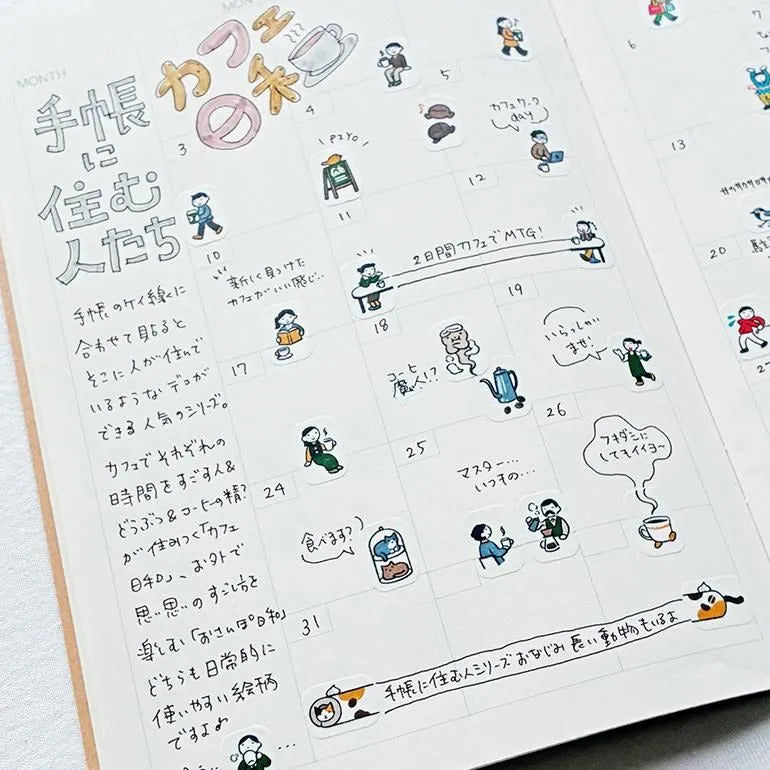 MONTH
MON
手帳
に
住む
人たち
カフェ
日和
手帳のケイ線に
合わせて貼ると
そこに人が住んで
いるようなデコが
できる人気のシリーズ。
カフェでそれぞれの
時間をすごす人&
どうぶつ&コーヒーの精?
が住みつく「カフェ
日和」、お外で
思い思いのすごし方を
楽しむ「おさんぽ日和」
どちらも日常的に
使いやすい絵柄
ですよ♪
3
4
5
6
カフェワーク
day
10
11
12
13
新しく見つけた
カフェがいい感じ…
2日間カフェでMTG!
17
18
19
20
コーヒー
魔人!?
いらっしゃい
ませ!
24
25
26
27
食べます?
マスター…
いつもの…
フキダシに
してもイイヨ〜
31
手帳に住む人シリーズおなじみ長い動物もいるよ